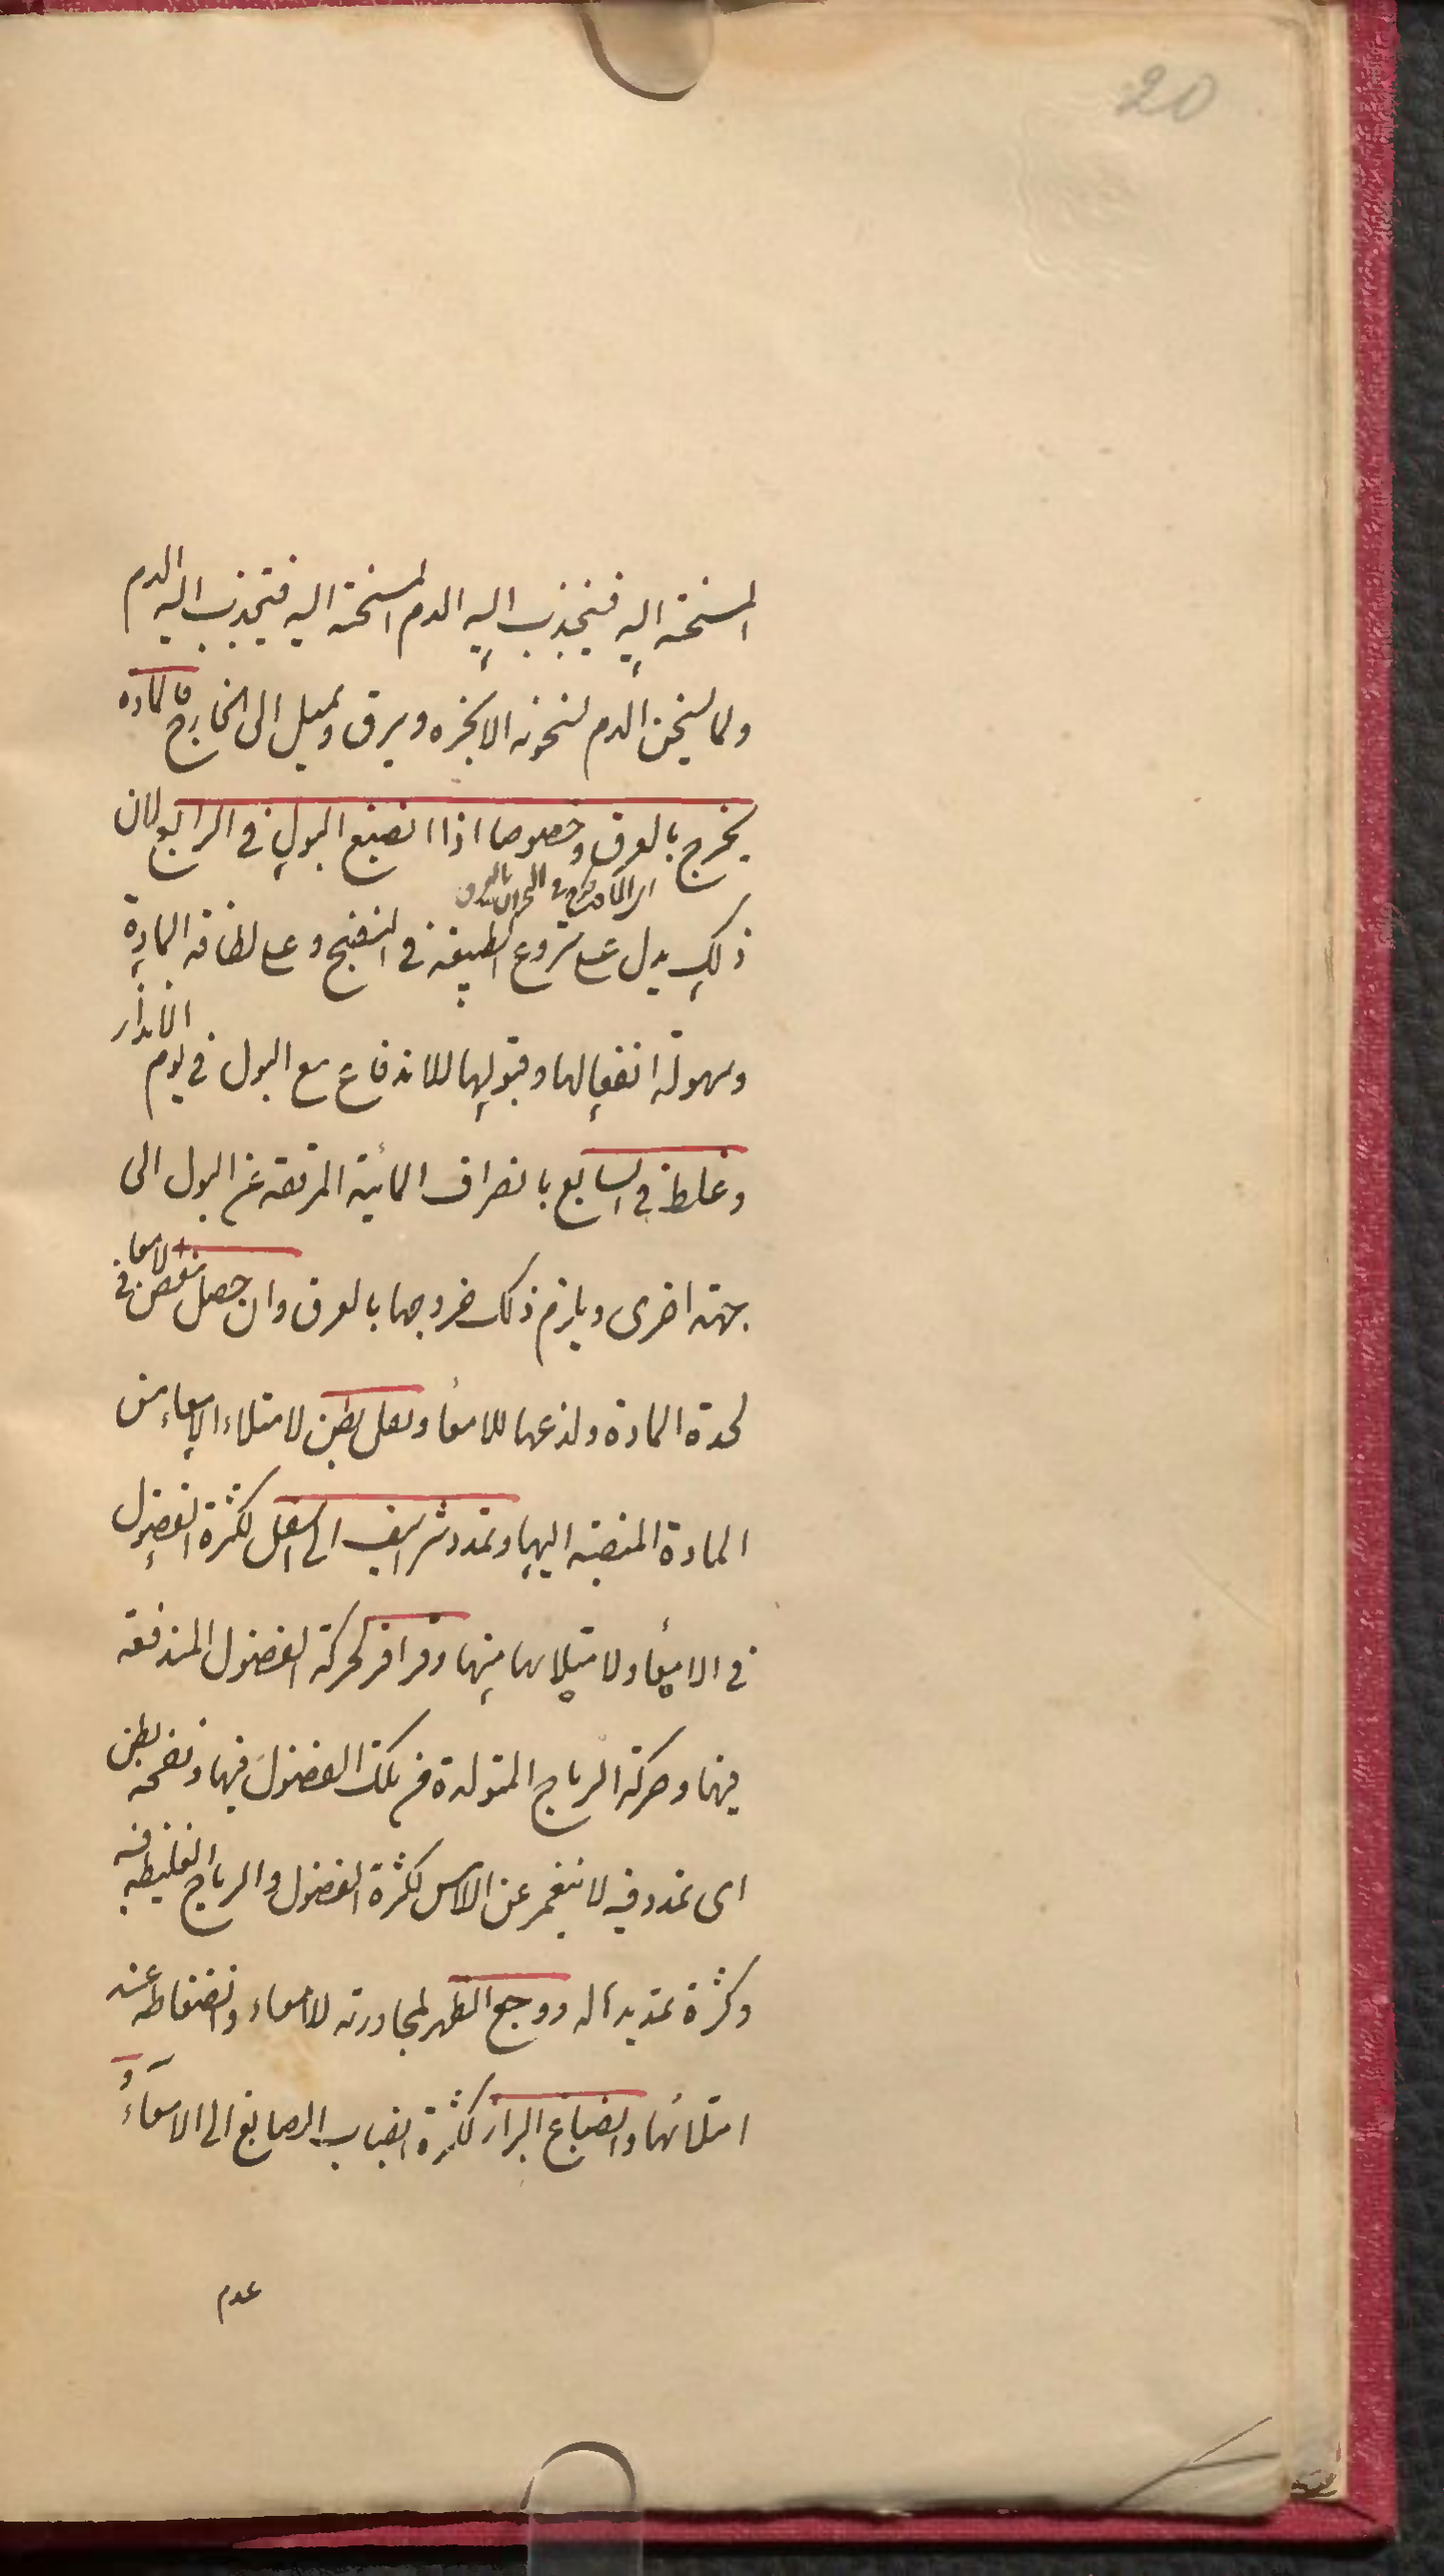 20
المسخنة اليه فينجذب اليه الدم المسخنة اليه فينجذب اليه الدم
ولما يسخن الدم لسخونة الابخره ويرق ويميل الى الخارج فالمادة
يخرج بالعرق وخصوصا اذا انصبغ البول فى الرابع لان
فى البحران بالعرق
ذلك يدل على شروع الطبيعة فى النضج وعلى لطافة المادة
وسهولة انفعالها وقبولها للاندفاع مع البول فى يوم الانذار
وغلظ فى السابع بانصراف المائية المرققة عن البول الى
جهة اخرى ويلزم ذلك خروجها بالعرق وان حصل مغص فى الامعا
لحدة المادة ولذعها للامعاء وثقل بطن لامتلاء الامعاء من
المادة المنصبة اليها وتمدد شراسيف الى اسفل لكثرة الفضول
فى الامعاء ولامتلائها منها وقراقر لحركة الفضول المندفعة
فيها وحركة الرياح المتولدة من تلك الفضول فيها ونفخة بطن
اى تمدد فيه لا ينغمر عن اللامس لكثرة الفضول والرياح الغليظة فيه
وكثرة تمديدها له ووجع الظهر لمجاورته للامعاء وانضغاطه عند
امتلائها وانصباغ البراز لكثرة انصباب الصابغ الى الامعاء و
عدم